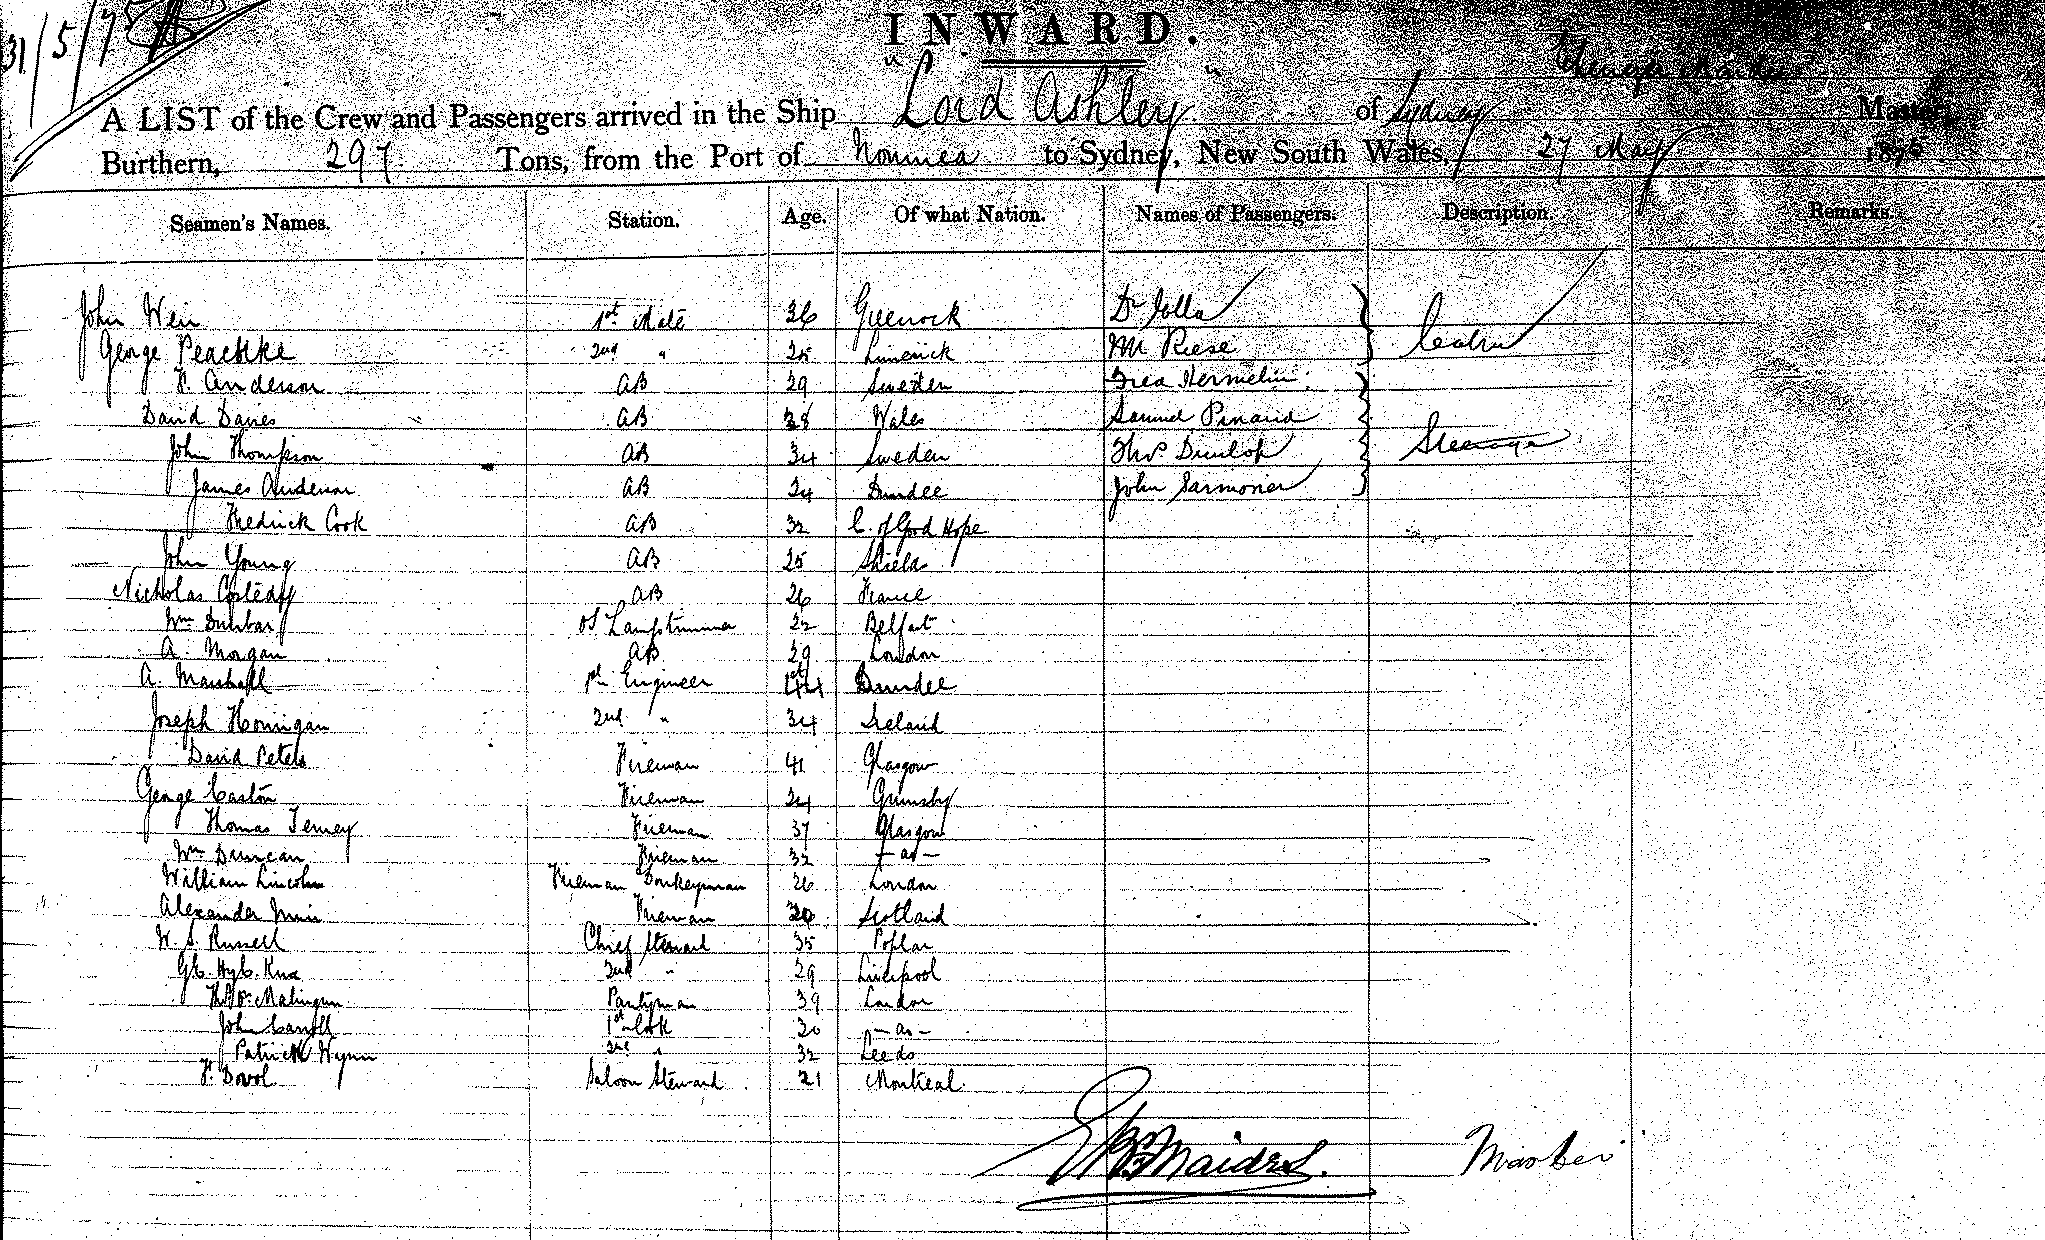 31/5/75
INWARD.
A LIST of the Crew and Passengers arrived in the Ship "Lord Ashley" of Sydney Master,
Burthern, 297 Tons, from the Port of Noumea to Sydney, New South Wales, 27 May 1875
Seamen's Names. Station. Age. Of what Nation. Names of Passengers. Description. Remarks.
John Weir 1st Mate 36 Greenock Dr
George Peachke 2nd " 25 Limerick Mr Riese
F. Anderson AB 29 Sweden Hermelin
David Davies AB 38 Wales Samuel Pinaud
John Thompson AB 34 Sweden Thos Dunlop Steerage
James Anderson AB 24 Dundee John
Fredrick Cook AB 32 C. of Good Hope
John Young AB 25 Shields
Nicholas AB 26 France
Wm Dunbar OS Lamptrimmer 22 Belfast
A. Morgan AB 29 London
A. Marshall 1st Engineer 44 Dundee
Joseph Hourigan 2nd " 34 Ireland
David Peters Fireman 41 Glasgow
George Caston Fireman 24 Grimsby
Thomas Fireman 37 Glasgow
Wm Duncan Fireman 32 - do -
William Lincoln Fireman Donkeyman 26 London
Alexander Muir Fireman Scotland
W. S. Russell Chief Steward 35 Poplar
2nd " 29 Liverpool
Pantryman 39 London
John Carroll 1st Cook 30 - do -
Patrick Wynn 2nd " 32 Leeds
F. Dovol Saloon Steward 21 Montreal
Master